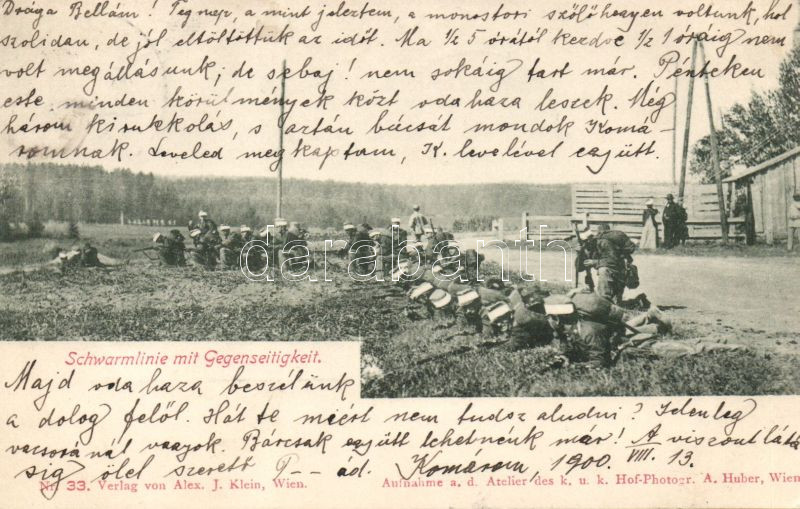 Drága Bellám! Tegnap, a mint jeleztem, a monostori szőlőhegyen voltunk, hol
szolidan, de jól eltöltöttük az időt. Ma ½ 5 órától kezdve ½ 1 óráig nem
volt megállásunk, de sebaj! nem sokáig tart már. Pénteken
este minden körülmények közt odahaza leszek. Még
három kirukkolás, s aztán búcsút mondok Komá-
romnak. Leveled megkaptam, K. levelével együtt.
darabanth
Schwarmlinie mit Gegenseitigkeit.
Majd odahaza beszélünk
a dolog felől. Hát te miért nem tudsz aludni? Jelenleg
vacsoránál vagyok. Bárcsak együtt lehetnénk már! A viszontlátá
sig ölel szerető T-- ád. Komárom, 1900. VIII. 13.
Nr. 33. Verlag von Alex. J. Klein, Wien.
Aufnahme a. d. Atelier des k. u. k. Hof-Photogr. A. Huber, Wien